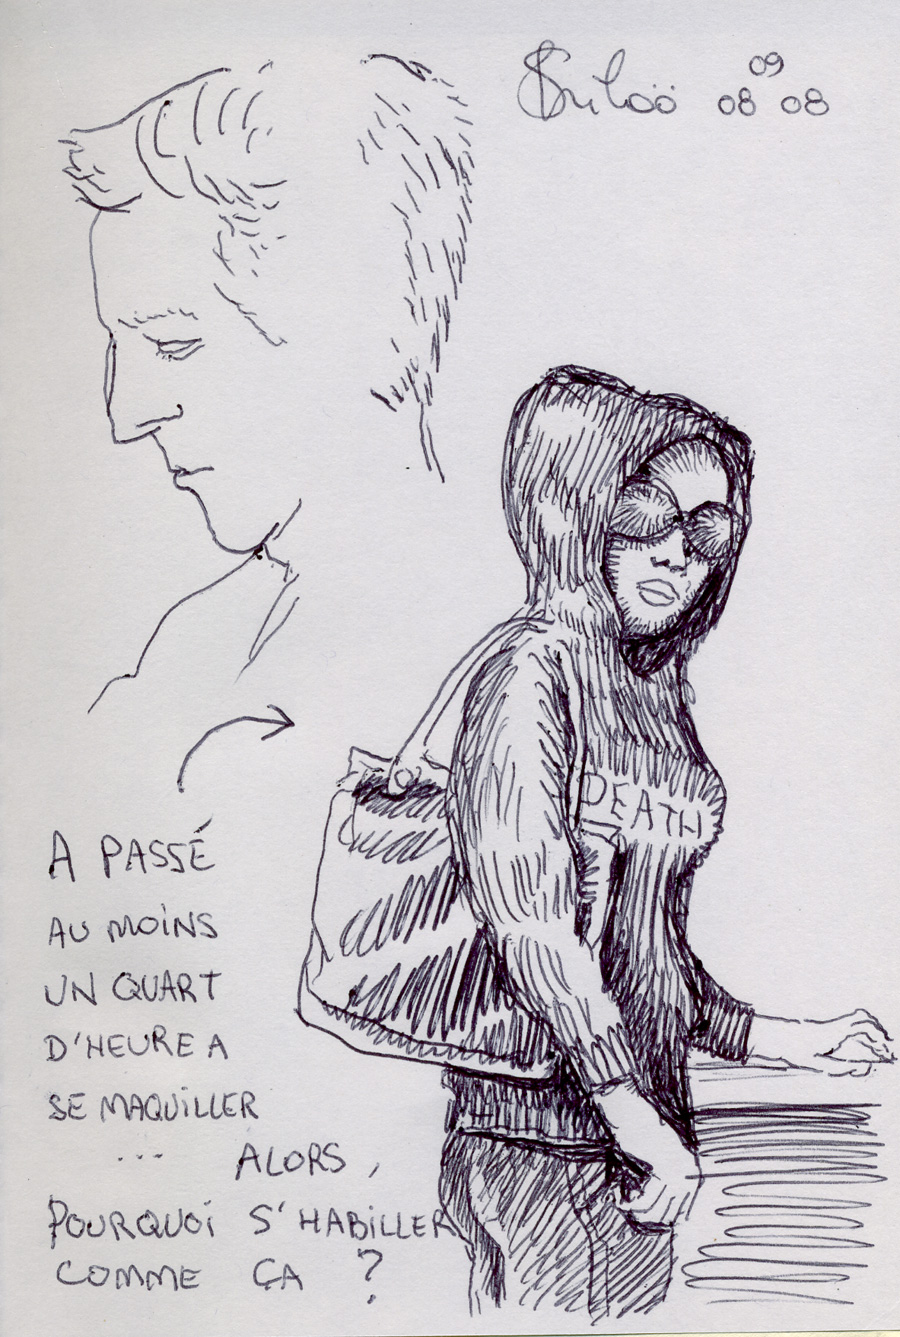 09
08 08
DEATH
A PASSÉ
AU MOINS
UN QUART
D'HEURE A
SE MAQUILLER
... ALORS,
POURQUOI S'HABILLER
COMME ÇA ?